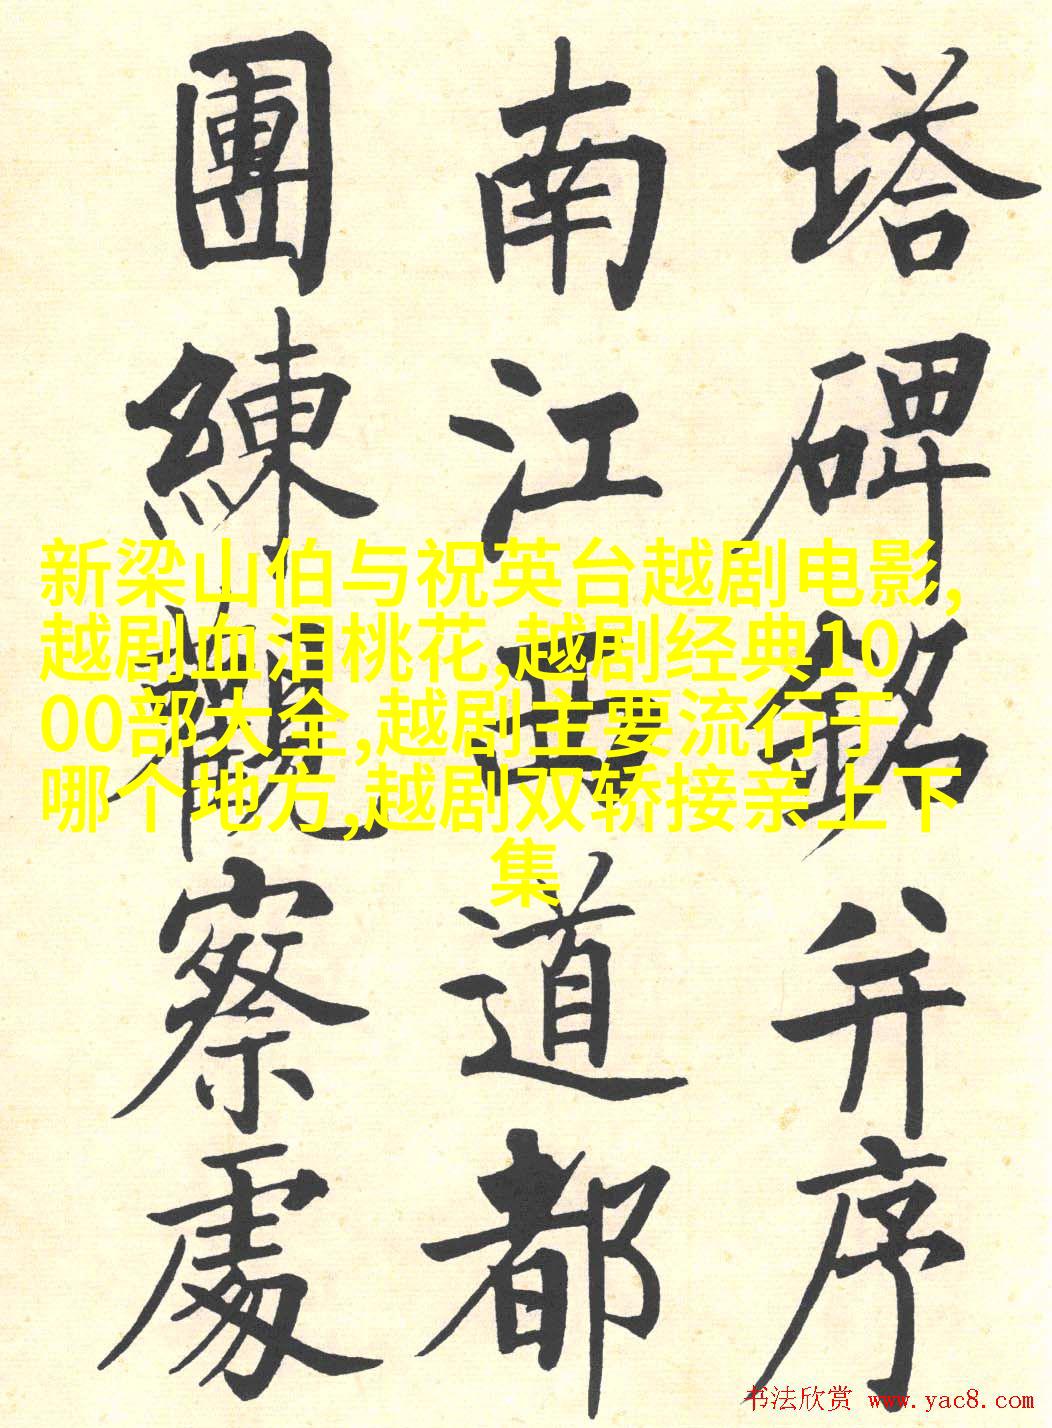 塔碑銘并序
南江西道都
團練觀察處
新梁山伯与祝英台越剧电影,
越剧血泪桃花,越剧经典10
00部大全,越剧主要流行于
哪个地方,越剧双轿接亲上下
集
书法欣赏 www.yac8.com